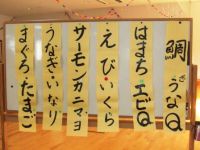 鯛 うなQ
はまち エビQ
えび・いくら
サーモンカニマヨ
うなぎ・いなり
まぐろ・たまご